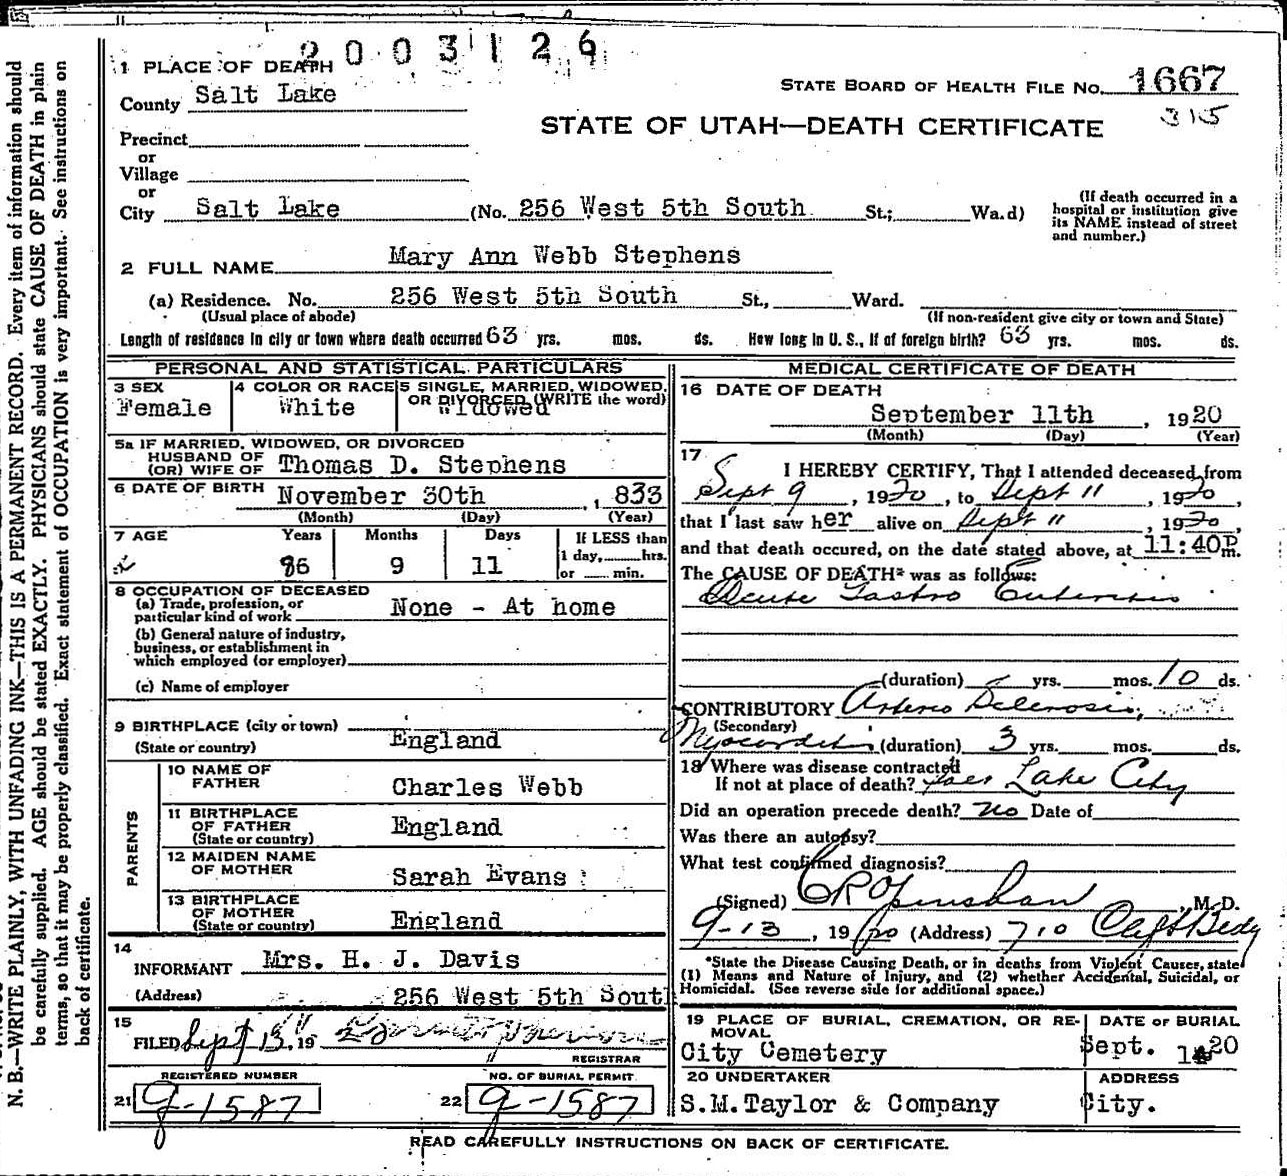 2003126
1 PLACE OF DEATH
STATE BOARD OF HEALTH FILE No. 1667
315
County Salt Lake
STATE OF UTAH—DEATH CERTIFICATE
Precinct
or
Village
or
City Salt Lake (No. 256 West 5th South St.; Wa.d)
(If death occurred in a hospital or institution give its NAME instead of street and number.)
2 FULL NAME Mary Ann Webb Stephens
(a) Residence. No. 256 West 5th South St., Ward.
(Usual place of abode) (If non-resident give city or town and State)
Length of residence in city or town where death occurred 63 yrs. mos. ds. How long in U. S., if of foreign birth? 63 yrs. mos. ds.
PERSONAL AND STATISTICAL PARTICULARS
3 SEX
Female
4 COLOR OR RACE
White
5 SINGLE, MARRIED, WIDOWED,
OR DIVORCED (WRITE the word)
Widowed
5a IF MARRIED, WIDOWED, OR DIVORCED
HUSBAND OF
(OR) WIFE OF Thomas D. Stephens
6 DATE OF BIRTH November 30th , 1833
(Month) (Day) (Year)
7 AGE Years Months Days
86 9 11
If LESS than
1 day, hrs.
or min.
8 OCCUPATION OF DECEASED
(a) Trade, profession, or
particular kind of work None - At home
(b) General nature of industry,
business, or establishment in
which employed (or employer)
(c) Name of employer
9 BIRTHPLACE (city or town)
(State or country) England
PARENTS
10 NAME OF
FATHER Charles Webb
11 BIRTHPLACE
OF FATHER
(State or country) England
12 MAIDEN NAME
OF MOTHER Sarah Evans
13 BIRTHPLACE
OF MOTHER
(State or country) England
14
INFORMANT Mrs. H. J. Davis
(Address) 256 West 5th South
15
FILED Sept 13, 19
REGISTRAR
REGISTERED NUMBER NO. OF BURIAL PERMIT
21 g-1587 22 g-1587
MEDICAL CERTIFICATE OF DEATH
16 DATE OF DEATH
September 11th , 1920
(Month) (Day) (Year)
17
I HEREBY CERTIFY, That I attended deceased from
Sept 9 , 1920, to Sept 11 , 1920,
that I last saw her alive on Sept 11 , 1920,
and that death occured, on the date stated above, at 11:40P m.
The CAUSE OF DEATH* was as follows:
Acute Gastro Enteritis
(duration) yrs. mos. 10 ds.
CONTRIBUTORY Arterio Sclerosis,
(Secondary)
Myocarditis (duration) 3 yrs. mos. ds.
18 Where was disease contracted
If not at place of death? Salt Lake City
Did an operation precede death? No Date of
Was there an autopsy?
What test confirmed diagnosis?
(Signed) C R Openshaw , M. D.
9-13 , 1920 (Address) 710 Clift Bldg
*State the Disease Causing Death, or in deaths from Violent Causes, state
(1) Means and Nature of Injury, and (2) whether Accidental, Suicidal, or
Homicidal. (See reverse side for additional space.)
19 PLACE OF BURIAL, CREMATION, OR RE-
MOVAL
City Cemetery
DATE OF BURIAL
Sept. 20
20 UNDERTAKER
S.M.Taylor & Company
ADDRESS
City.
READ CAREFULLY INSTRUCTIONS ON BACK OF CERTIFICATE.
N. B.—WRITE PLAINLY, WITH UNFADING INK—THIS IS A PERMANENT RECORD. Every item of information should
be carefully supplied. AGE should be stated EXACTLY. PHYSICIANS should state CAUSE OF DEATH in plain
terms, so that it may be properly classified. Exact statement of OCCUPATION is very important. See instructions on
back of certificate.